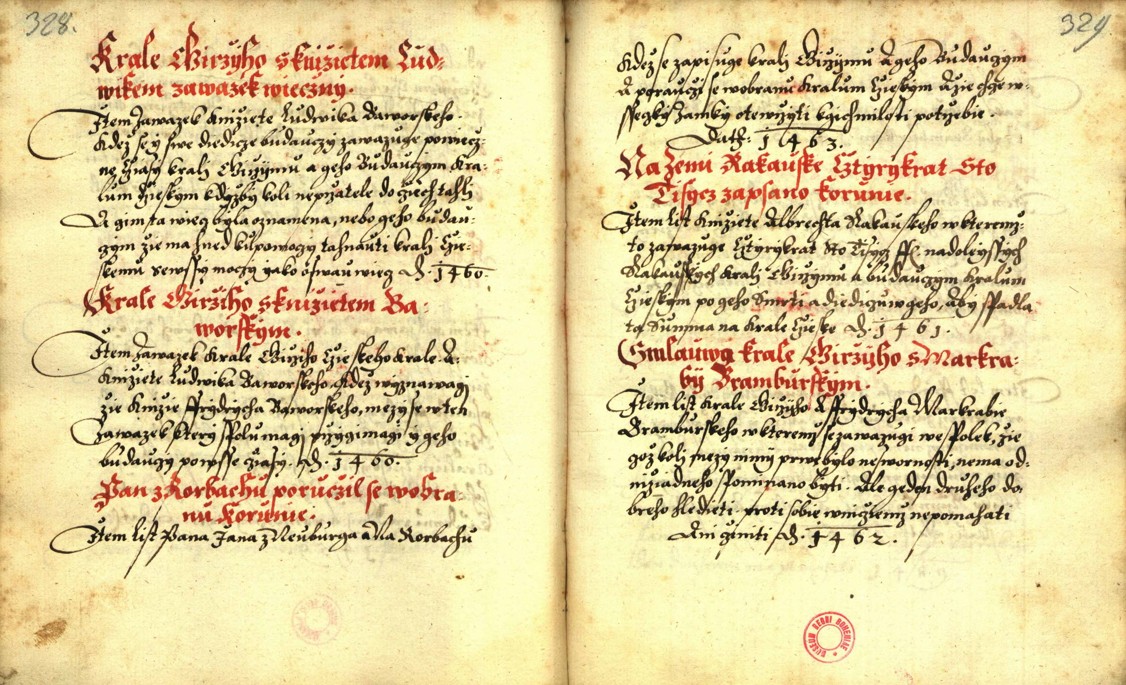 328.
Krale Girzyho s knizietem Lud-
wikem zawazek wieczny.
Item zawazek Knizete Ludwika Baworskeho.
Kdez se y swe diedicze budauczy zawazuge powiecz-
ne cziasy krali Girzymu a geho Budauczym Kra-
lum Czieskym kdyzby koli neprzatele do Czech tahli
A gim ta wiec byla oznamena, nebo geho budau-
czym zie ma hned ku pomoczy tahnauti krali Czie-
skemu se wssy moczy yako o swau wiecz A. 1460.
Krale Girziho s knizietem Ba-
worskym.
Item zawazek Krale Girziho Czieskeho Krale A
Knizete Ludwika Baworskeho. Kdez wyznawagi
zie Knizie Ffrydrycha Baworskeho, mezy se w ten
Zawazek ktery spolu magi przygimagi y geho
budauczy po wsse cziasy. A. 1460.
Pan z Rorbachu poruczil se w obra-
nu korunie.
Item list Pana Jana z Neuburga a Na Rorbachu
329.
Kdez se zapisuge krali Girzymu A geho Budauczym
A porauczi se w obranu Kralum Czieskym A zie chcze w-
sseczky Zamky otewrzyti k gich milosti potrzebie.
Dat. 1463.
Na Zemi Rakauske Cztyrykrat Sto
Tisycz zapsano korunie.
Item list Knizete Albrechta Rakauskeho w kterem-
to zawazuge Cztyrykrat Sto Tisycz na dolegssych
Rakauskych krali Girzymu a budauczym Kralum
Czieskym po geho Smrti a diediczuw geho, aby spadla
ta Summa na Krale Czieske A. 1461.
Smlauwa krale Girzyho s Markra-
bij Bramburskym.
Item list Krale Girzyho A Ffrydrycha Markrabie
Bramburskeho w kterem se zawazugi we spolek, zie
goz koli mezy nimi prwe bylo neswornosti, nema od
zadneho spominano byti. Ale geden druheho do-
breho hledieti proti sobie w niczemz nepomahati
Ani giniti A. 1462.